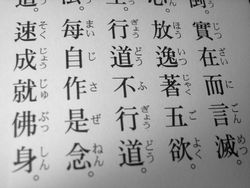 實在而言滅。
ざいにごんめつ
放逸著五欲。
ほういつじゃくごよく
行道不行道。
ぎょうどうふぎょうどう
每自作是念。
まいじさぜねん
速成就佛身。
そくじょうじゅぶっしん